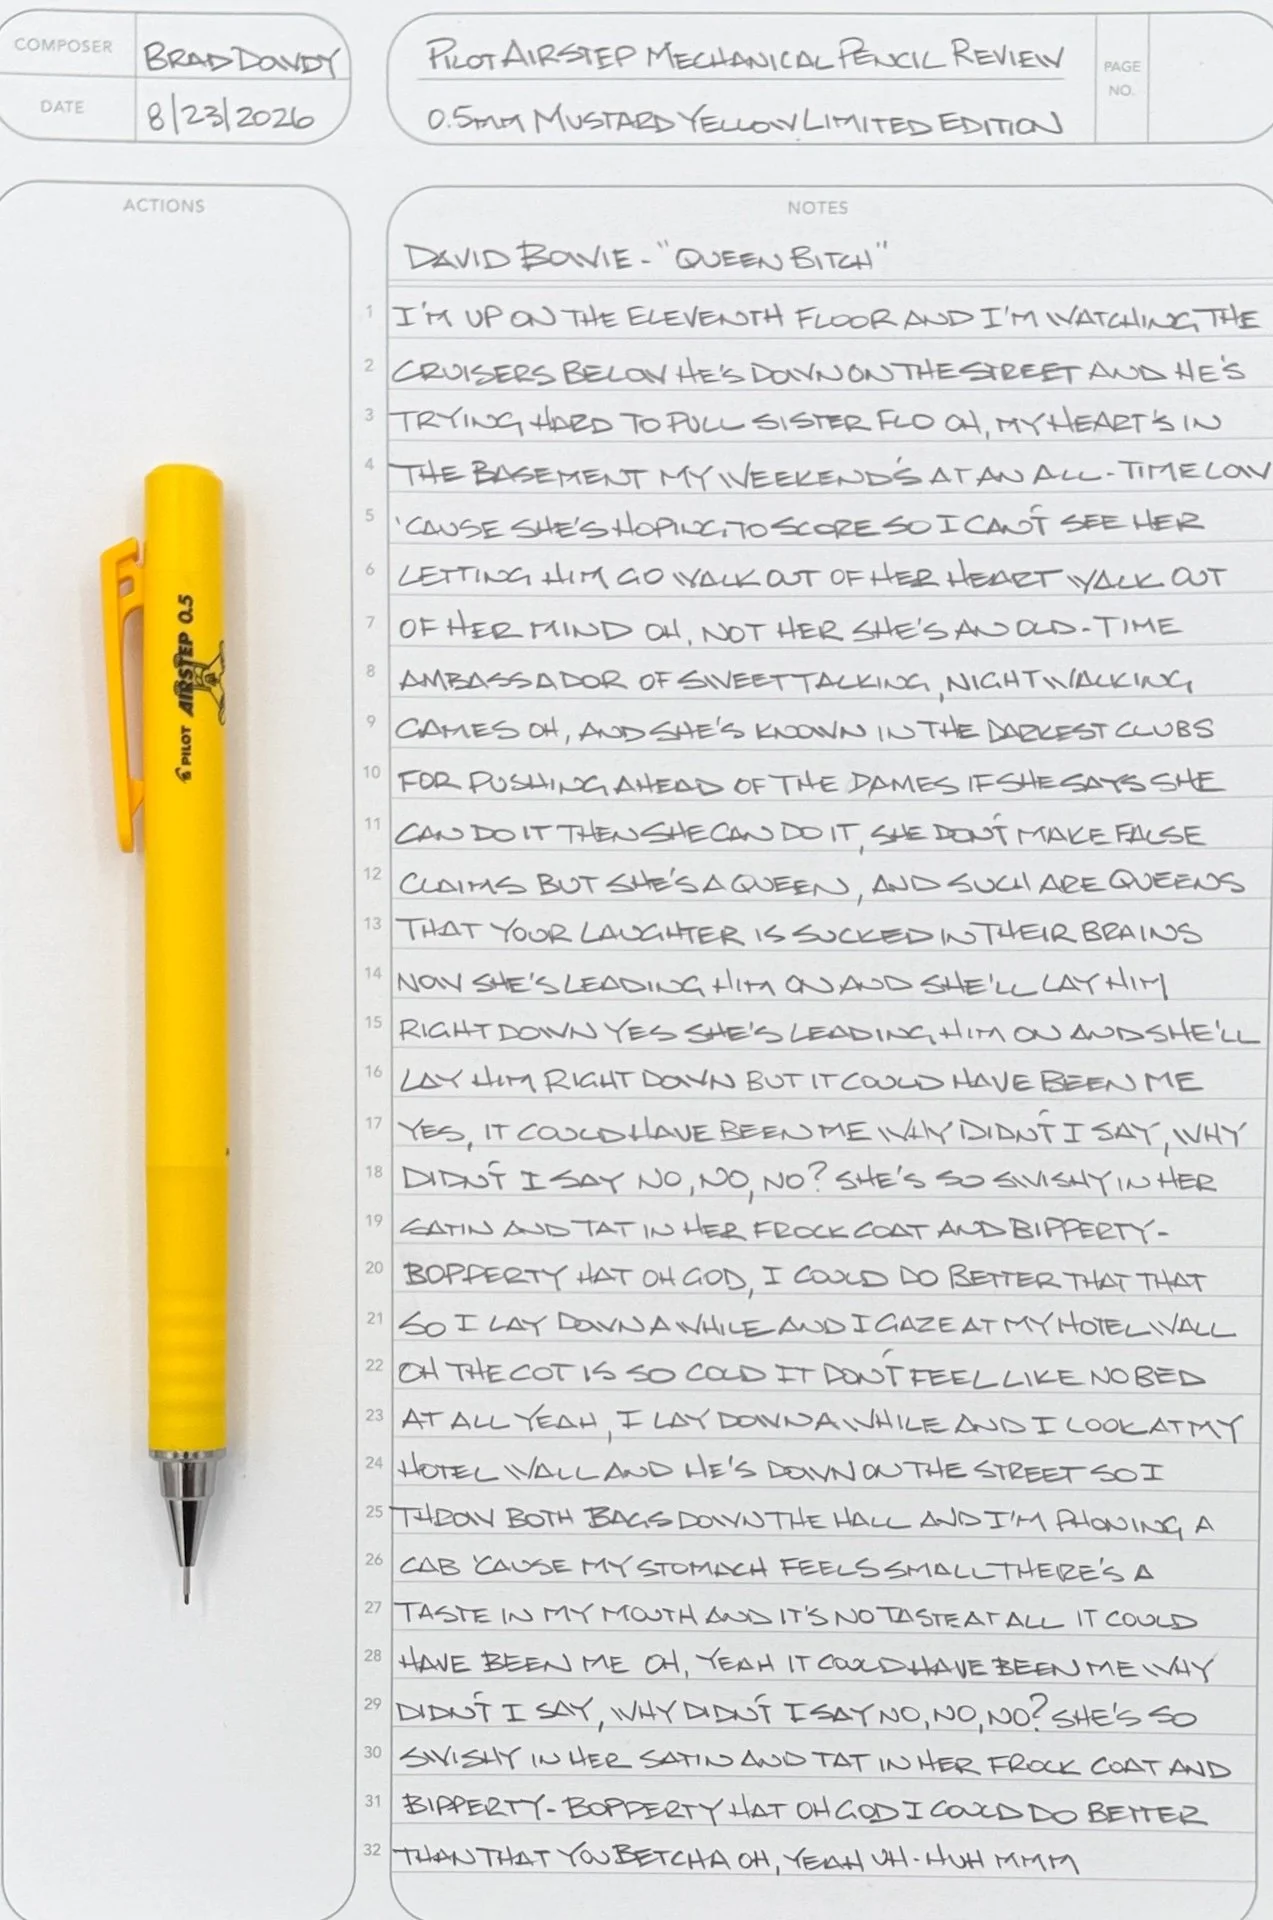 COMPOSER
BRAD DOWDY
DATE
8/23/2026
PILOT AIRSTEP MECHANICAL PENCIL REVIEW
0.5MM MUSTARD YELLOW LIMITED EDITION
PAGE
NO.
ACTIONS
PILOT AIRSTEP 0.5
NOTES
DAVID BOWIE - "QUEEN BITCH"
1 I'M UP ON THE ELEVENTH FLOOR AND I'M WATCHING THE
2 CRUISERS BELOW HE'S DOWN ON THE STREET AND HE'S
3 TRYING HARD TO PULL SISTER FLO OH, MY HEART'S IN
4 THE BASEMENT MY WEEKEND'S AT AN ALL-TIME LOW
5 'CAUSE SHE'S HOPING TO SCORE SO I CAN'T SEE HER
6 LETTING HIM GO WALK OUT OF HER HEART WALK OUT
7 OF HER MIND OH, NOT HER SHE'S AN OLD-TIME
8 AMBASSADOR OF SWEET TALKING, NIGHT WALKING
9 GAMES OH, AND SHE'S KNOWN IN THE DARKEST CLUBS
10 FOR PUSHING AHEAD OF THE DAMES IF SHE SAYS SHE
11 CAN DO IT THEN SHE CAN DO IT, SHE DON'T MAKE FALSE
12 CLAIMS BUT SHE'S A QUEEN, AND SUCH ARE QUEENS
13 THAT YOUR LAUGHTER IS SUCKED IN THEIR BRAINS
14 NOW SHE'S LEADING HIM ON AND SHE'LL LAY HIM
15 RIGHT DOWN YES SHE'S LEADING HIM ON AND SHE'LL
16 LAY HIM RIGHT DOWN BUT IT COULD HAVE BEEN ME
17 YES, IT COULD HAVE BEEN ME WHY DIDN'T I SAY, WHY
18 DIDN'T I SAY NO, NO, NO? SHE'S SO SWISHY IN HER
19 SATIN AND TAT IN HER FROCK COAT AND BIPPERTY-
20 BOPPERTY HAT OH GOD, I COULD DO BETTER THAT THAT
21 SO I LAY DOWN A WHILE AND I GAZE AT MY HOTEL WALL
22 OH THE COT IS SO COLD IT DON'T FEEL LIKE NO BED
23 AT ALL YEAH, I LAY DOWN A WHILE AND I LOOK AT MY
24 HOTEL WALL AND HE'S DOWN ON THE STREET SO I
25 THROW BOTH BAGS DOWN THE HALL AND I'M PHONING A
26 CAB 'CAUSE MY STOMACH FEELS SMALL THERE'S A
27 TASTE IN MY MOUTH AND IT'S NO TASTE AT ALL IT COULD
28 HAVE BEEN ME OH, YEAH IT COULD HAVE BEEN ME WHY
29 DIDN'T I SAY, WHY DIDN'T I SAY NO, NO, NO? SHE'S SO
30 SWISHY IN HER SATIN AND TAT IN HER FROCK COAT AND
31 BIPPERTY-BOPPERTY HAT OH GOD I COULD DO BETTER
32 THAN THAT YOU BETCHA OH, YEAH UH-HUH MMM